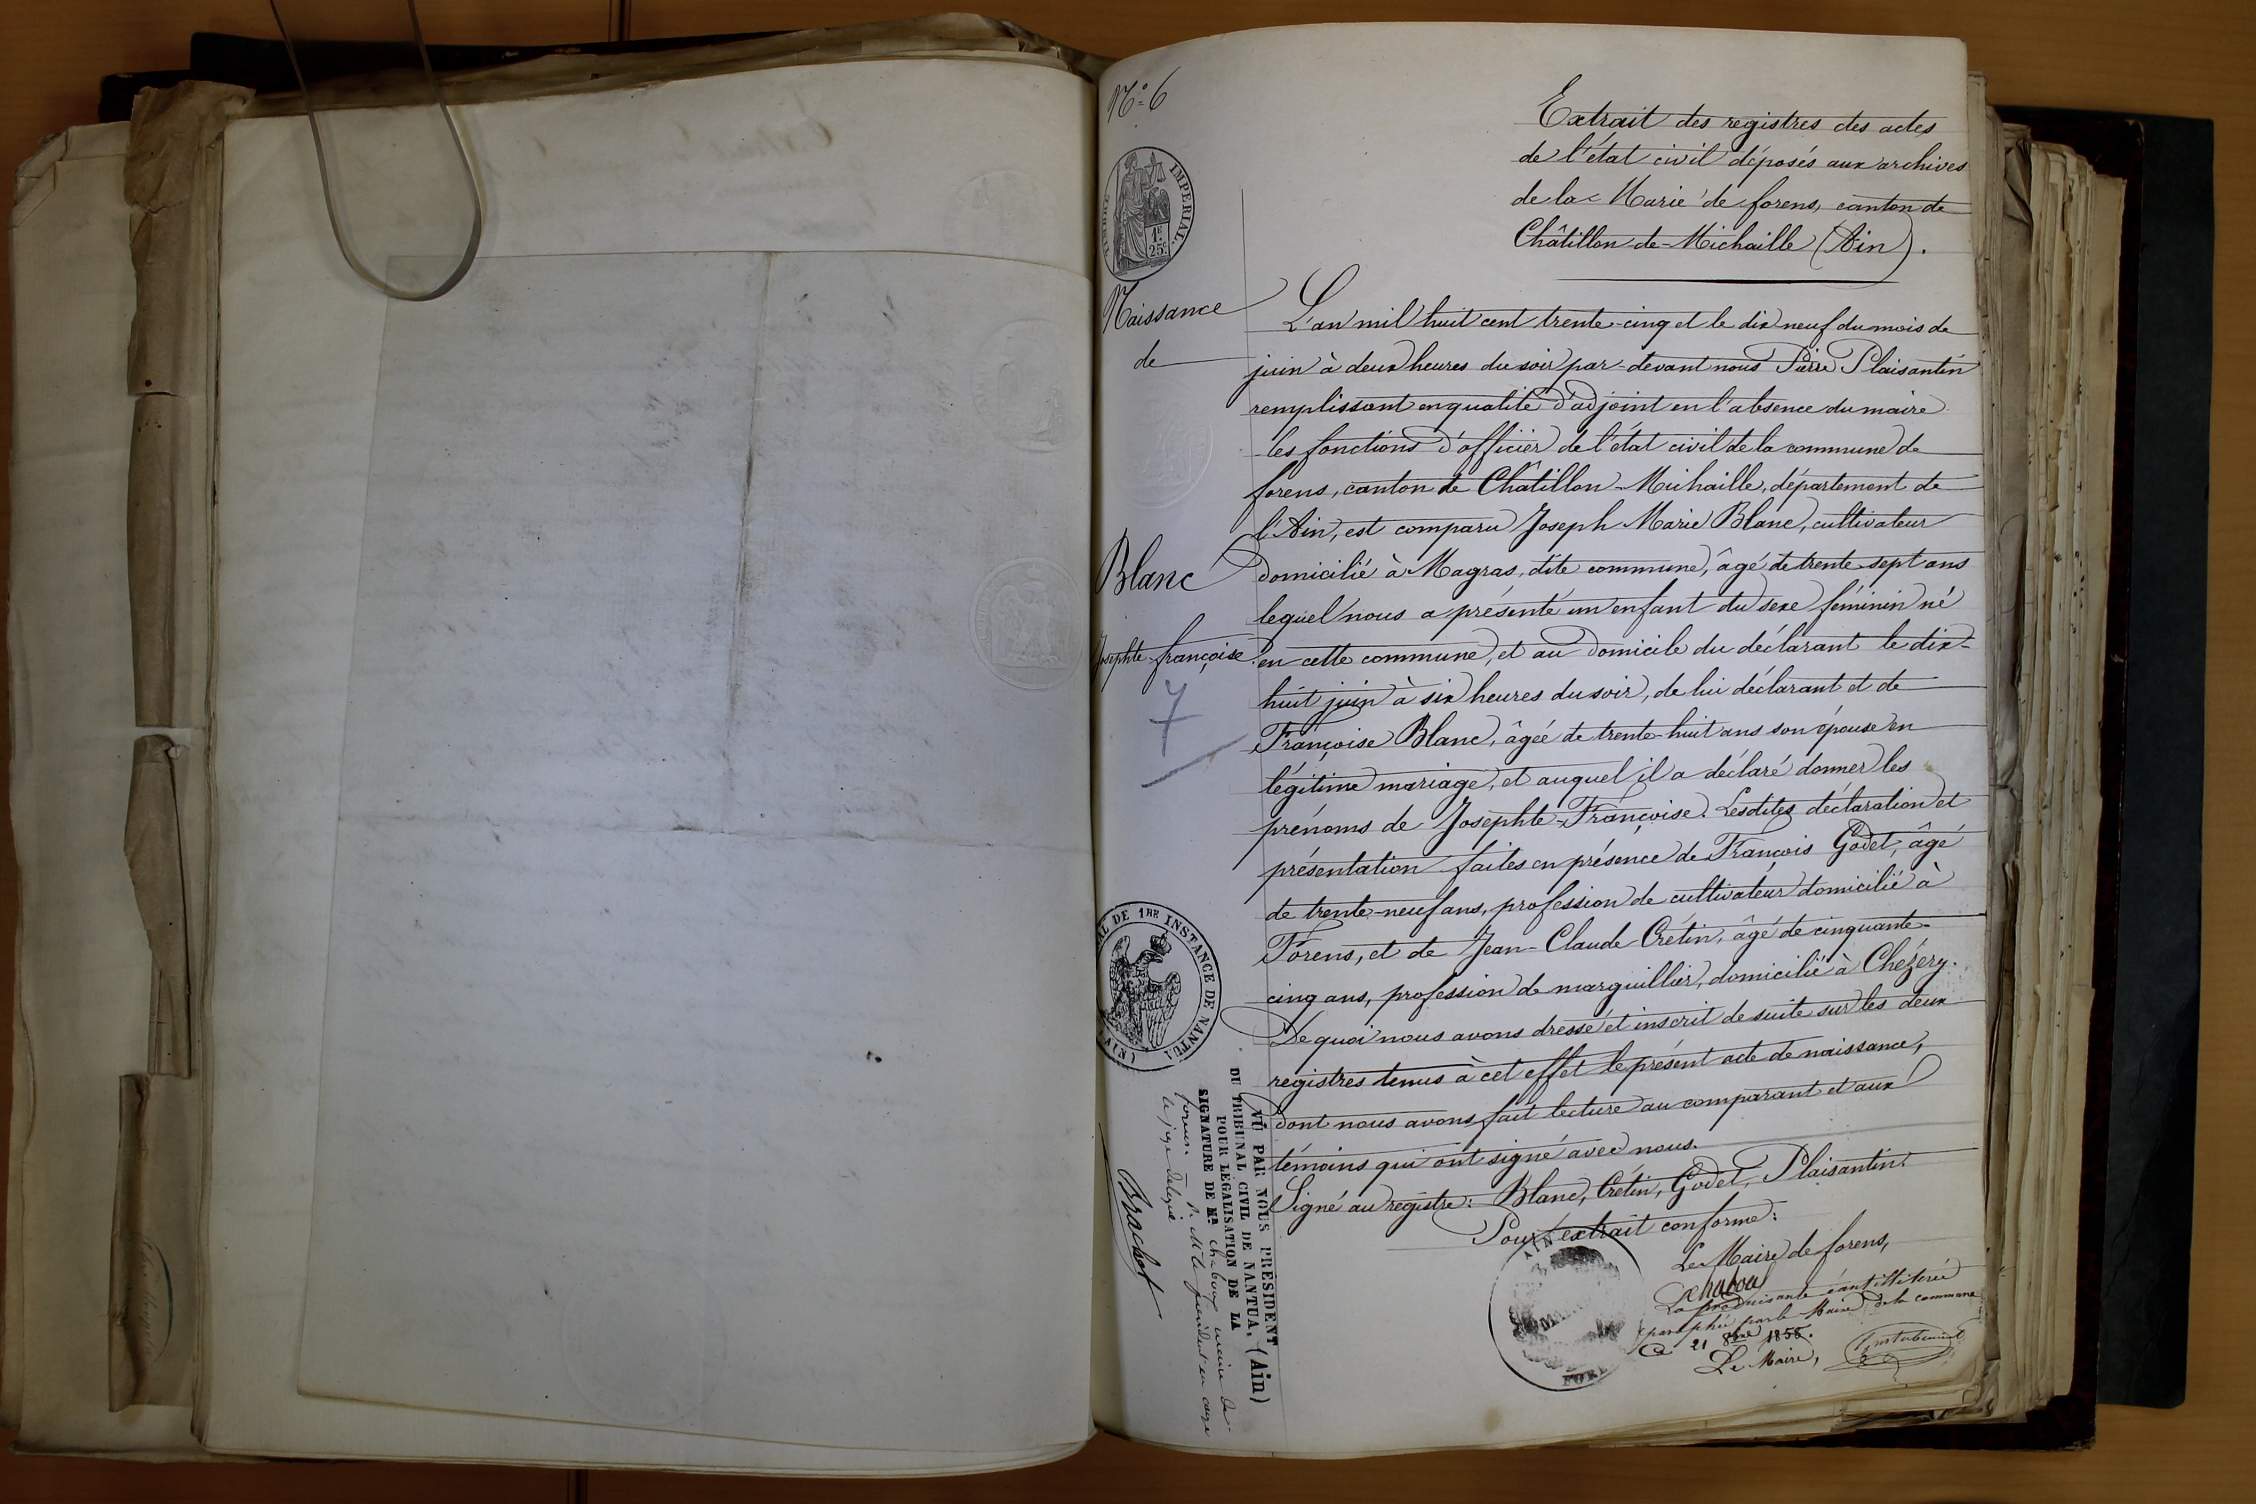 N.° 6
Extrait des registres des actes
de l'état civil déposés aux archives
de la Marie de forens, canton de
Châtillon-de-Michaille (Ain).
TIMBRE IMPERIAL
1F.
25C.
Naissance
de
Blanc
Josephte-françoise.
7
L'an mil huit cent trente-cinq et le dix neuf du mois de
juin à deux heures du soir par-devant nous Pierre Plaisantin
remplissant en qualité d'adjoint en l'absence du maire
les fonctions d'officier de l'état civil de la commune de
forens, canton de Châtillon-Michaille, département de
l'Ain, est comparu Joseph Marie Blanc, cultivateur
domicilié à Magras, dite commune, âgé de trente sept ans
lequel nous a présenté un enfant du sexe féminin né
en cette commune, et au domicile du déclarant le dix-
huit juin à six heures du soir, de lui déclarant et de
Françoise Blanc, âgée de trente-huit ans son épouse en
légitime mariage, et auquel il a déclaré donner les
prénoms de Josephte-Françoise. Lesdites déclaration et
présentation faites en présence de François Godet, âgé
de trente-neuf ans, profession de cultivateur domicilié à
Forens, et de Jean-Claude Crétin, âgé de cinquante-
cinq ans, profession de marguillier, domicilié à Chézery.
De quoi nous avons dressé et inscrit de suite sur les deux
registres tenus à cet effet le présent acte de naissance,
dont nous avons fait lecture au comparant et aux
témoins qui ont signé avec nous.
Signé au registre: Blanc, Crétin, Godet, Plaisantin.
Pour extrait conforme:
Le Maire de forens,
Chabou
La produisante étant illitérée
paraphée par le Maire de la commune
Ce 21 8bre 1858.
Le Maire,
AIN
FORE
AL DE 1RE INSTANCE DE NANTUA
(AIN)
VU PAR NOUS PRÉSIDENT
DU TRIBUNAL CIVIL DE NANTUA, (Ain)
POUR LÉGALISATION DE LA
SIGNATURE DE Mr. Chabou maire de
forens. Pr. Mr le président en congé
Le juge délégué
Brachet